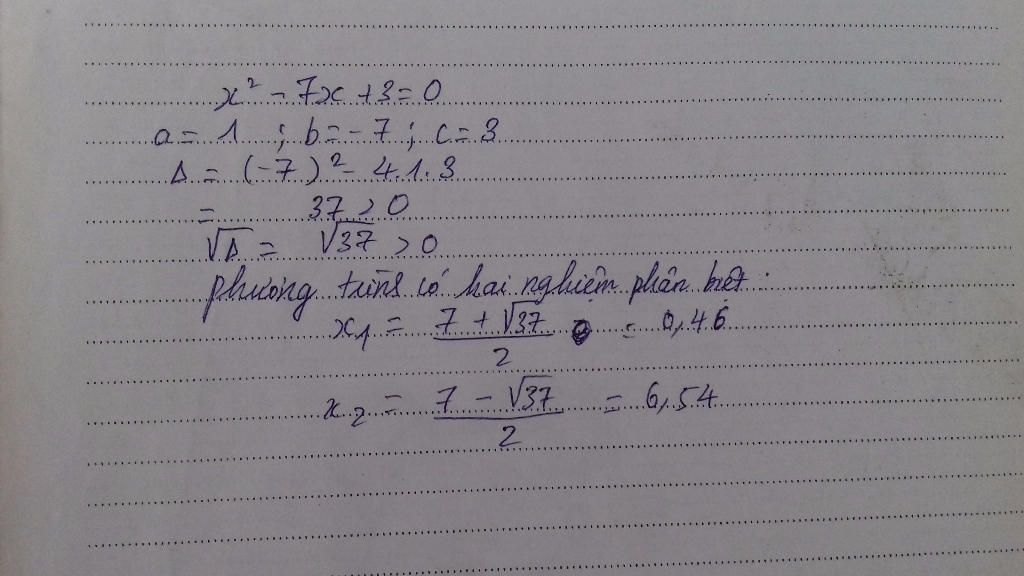 x² - 7x + 3 = 0
a = 1 ; b = -7 ; c = 3
Δ = (-7)² - 4.1.3
= 37 > 0
√Δ = √37 > 0
phương trình có hai nghiệm phân biệt.
x₁ = (7 + √37)/2 = 0,46
x₂ = (7 - √37)/2 = 6,54